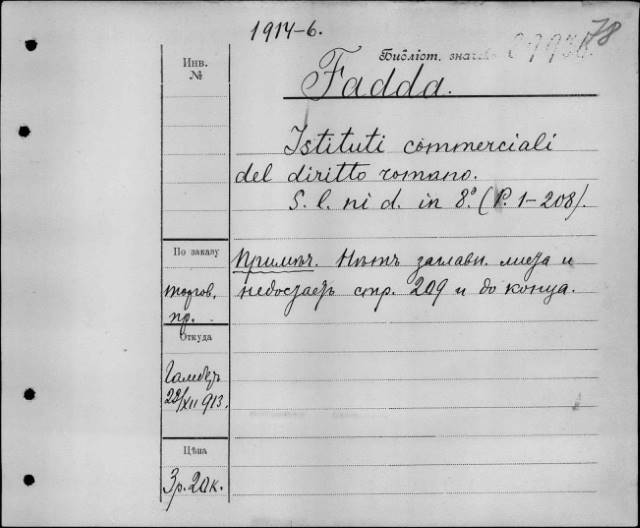 1914-6.
78
Библіот. значе
Fadda.
Инв.
№
Istituti commerciali
del diritto romano.
S. l. ni d. in 8º (P. 1-208).
По заказу
Примѣч. Нѣтъ заглавн. листа и
недостаетъ стр. 209 и до конца.
торгов.
пр.
Откуда
22/XII 913.
Цѣна
3р. 20к.